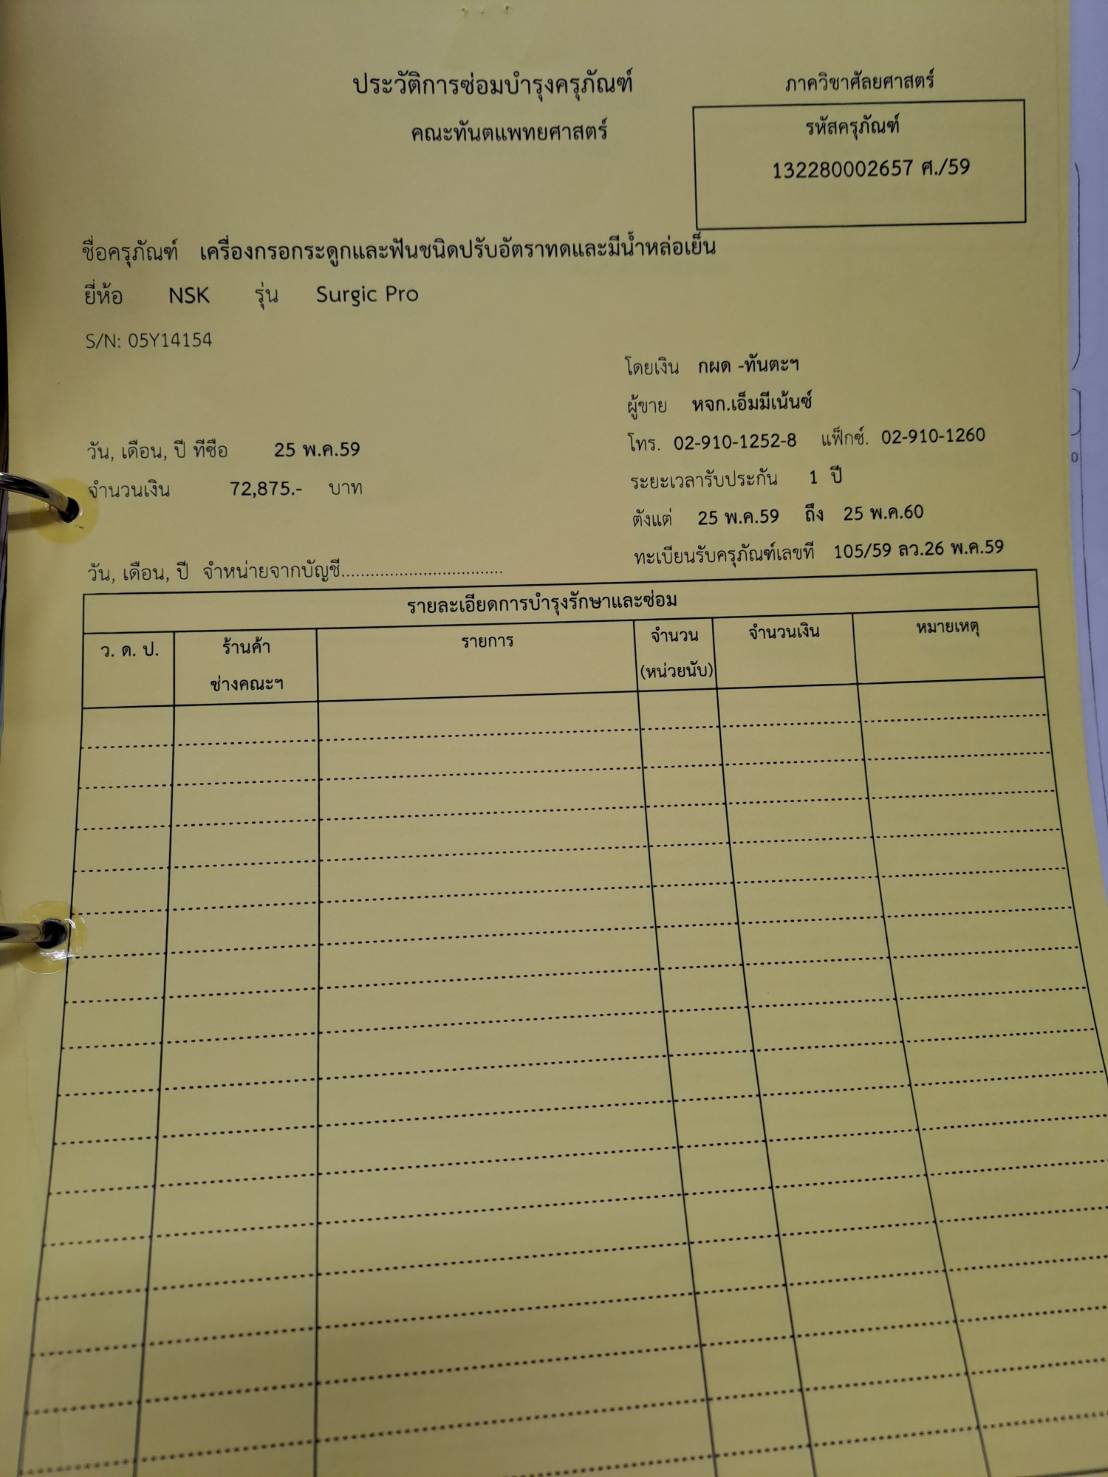 ประวัติการซ่อมบำรุงครุภัณฑ์
ภาควิชาศัลยศาสตร์
คณะทันตแพทยศาสตร์
รหัสครุภัณฑ์
132280002657 ศ./59
ชื่อครุภัณฑ์ เครื่องกรอกระดูกและฟันชนิดปรับอัตราทดและมีน้ำหล่อเย็น
ยี่ห้อ NSK รุ่น Surgic Pro
S/N: 05Y14154
โดยเงิน กผด -ทันตะฯ
ผู้ขาย หจก.เอ็มมีเน้นซ์
วัน, เดือน, ปี ที่ซื้อ 25 พ.ค.59
โทร. 02-910-1252-8 แฟ็กซ์. 02-910-1260
จำนวนเงิน 72,875.- บาท
ระยะเวลารับประกัน 1 ปี
ตั้งแต่ 25 พ.ค.59 ถึง 25 พ.ค.60
วัน, เดือน, ปี จำหน่ายจากบัญชี.................................
ทะเบียนรับครุภัณฑ์เลขที่ 105/59 ลว.26 พ.ค.59
รายละเอียดการบำรุงรักษาและซ่อม
ว. ด. ป.
ร้านค้า
ช่างคณะฯ
รายการ
จำนวน
(หน่วยนับ)
จำนวนเงิน
หมายเหตุ